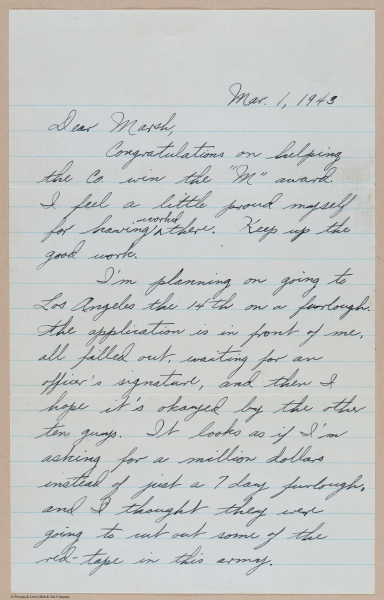 Mar. 1, 1943
Dear Marsh,
Congratulations on helping
the Co. win the "M" award.
I feel a little proud myself
for having worked there. Keep up the
good work.
I'm planning on going to
Los Angeles the 14th on a furlough.
The application is in front of me,
all filled out, waiting for an
officer's signature, and then I
hope it's okayed by the other
ten guys. It looks as if I'm
asking for a million dollars
instead of just a 7 day furlough,
and I thought they were
going to cut out some of the
red-tape in this army.